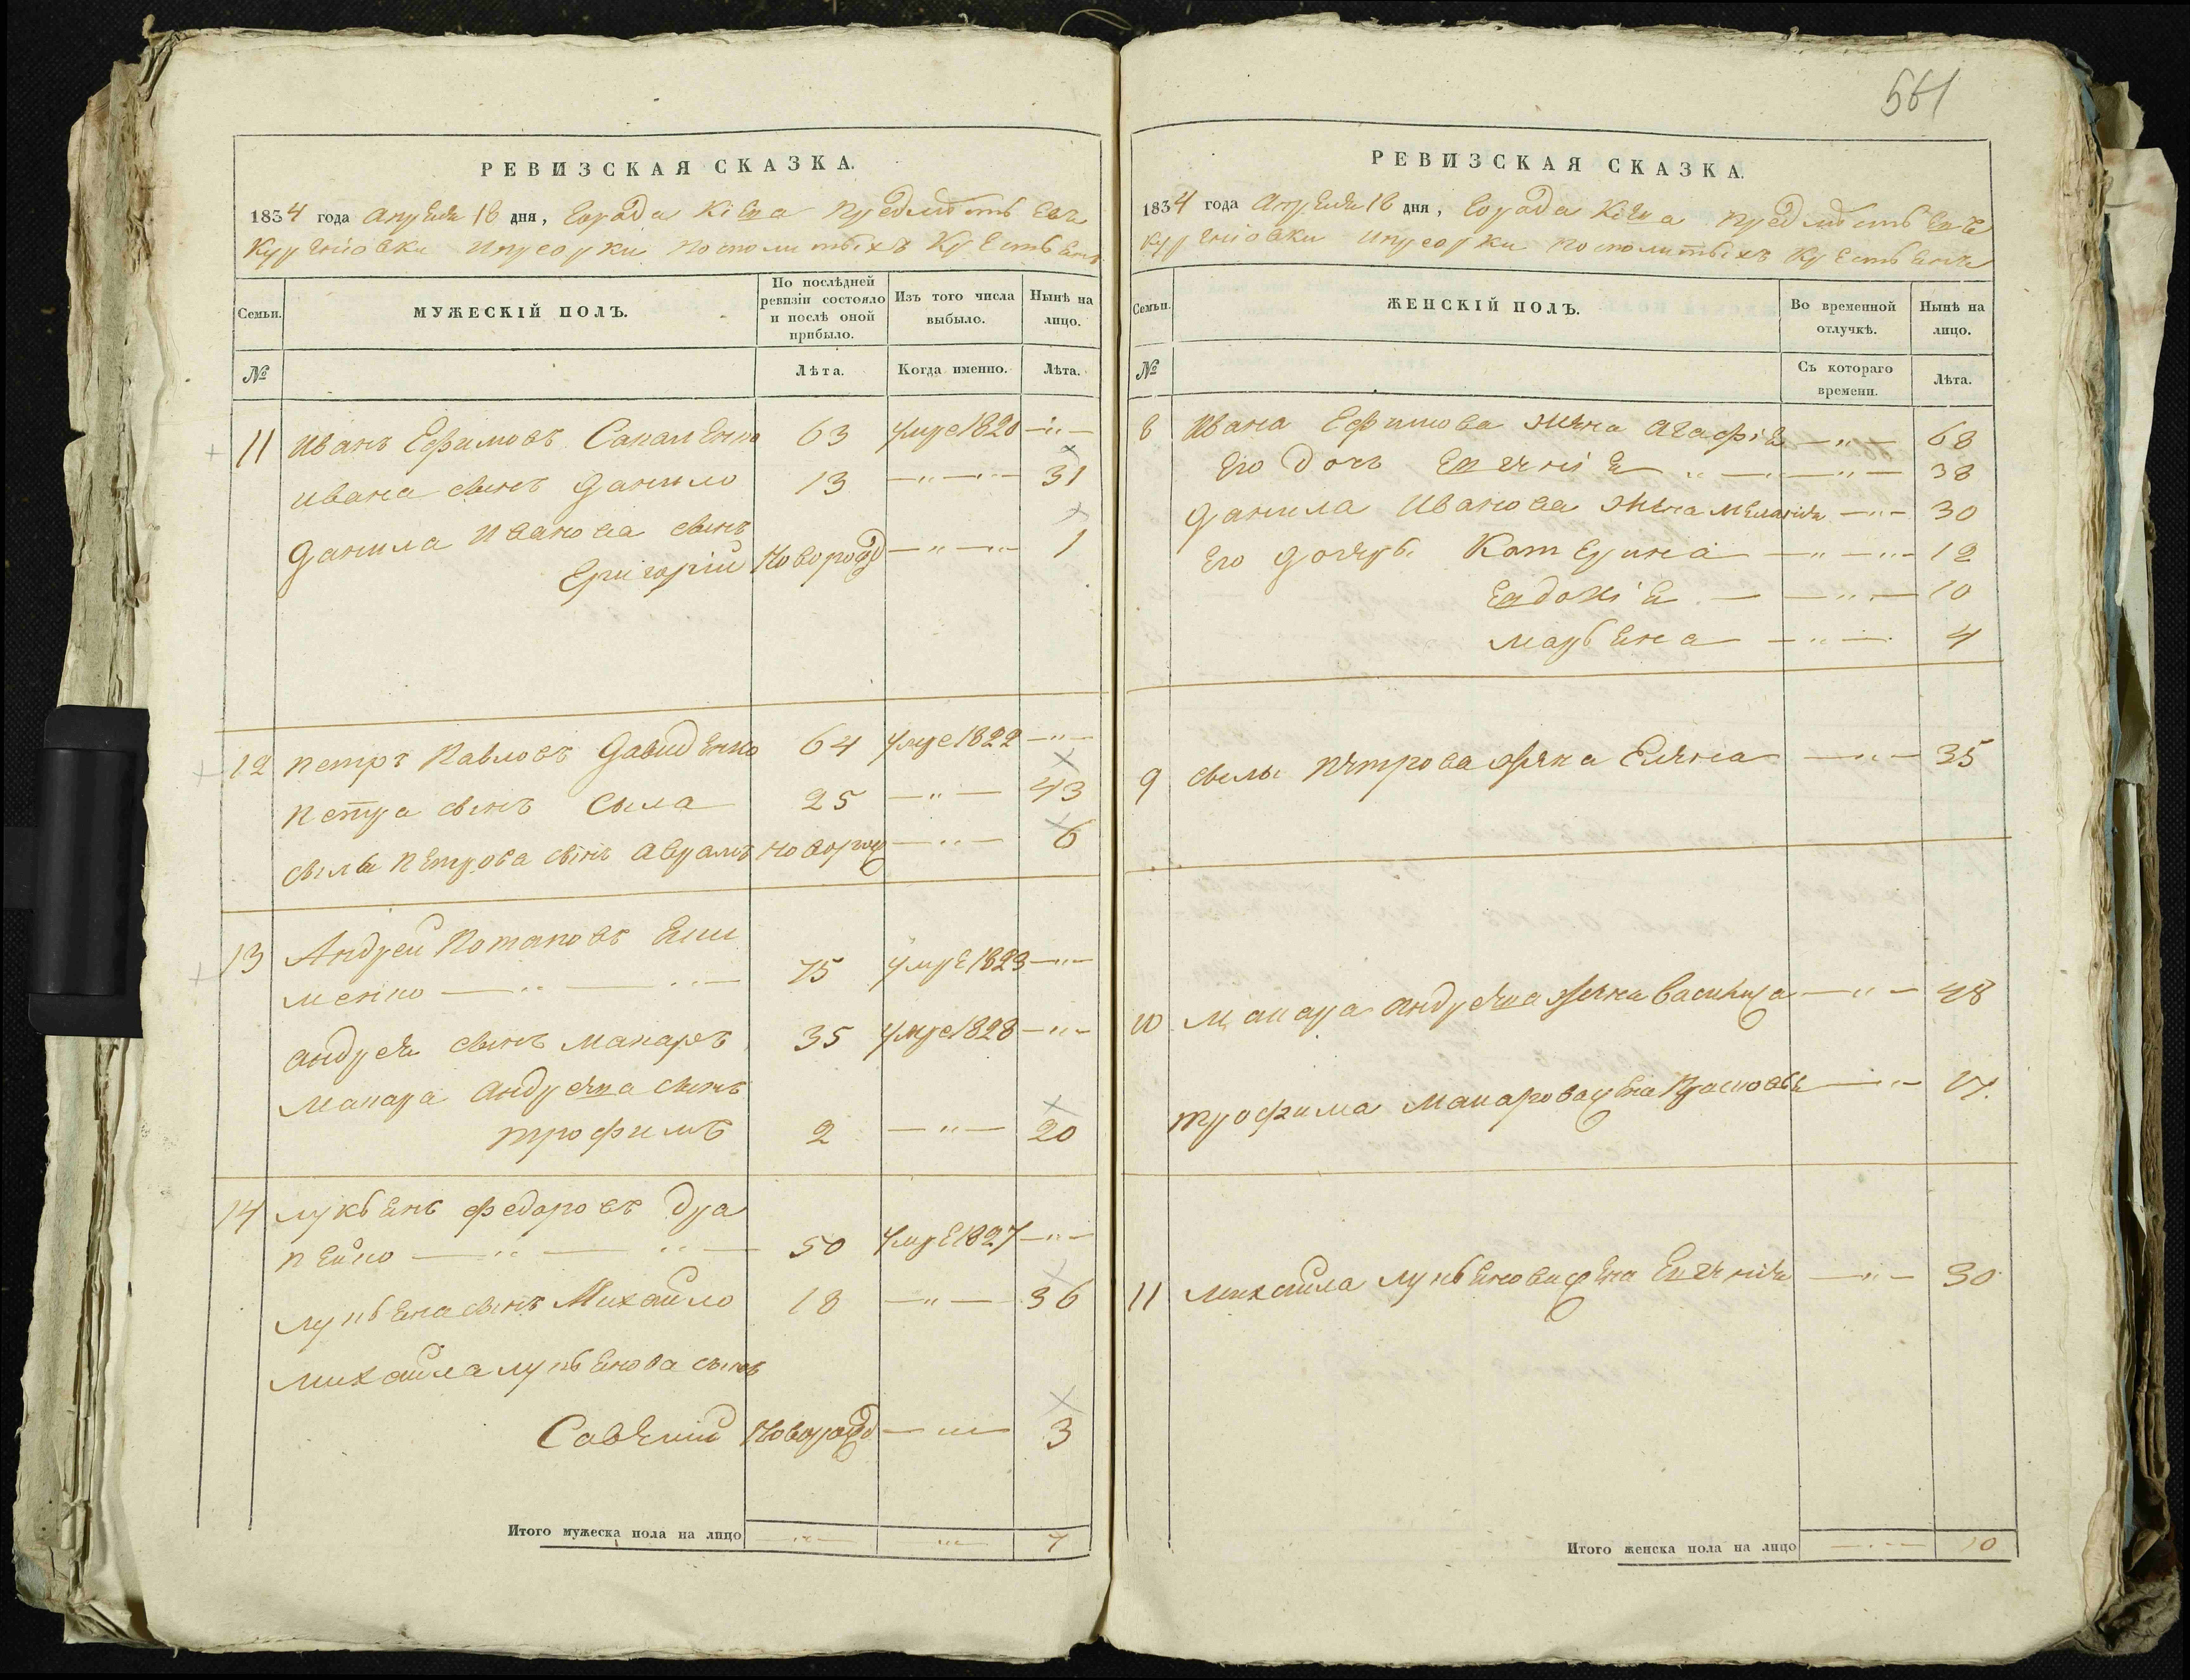 561
РЕВИЗСКАЯ СКАЗКА.
1834 года Апреля 18 дня, Города Киева предместьев
Куреневки и Приорки посполитыхъ Крестьянъ
Семьи.
МУЖЕСКІЙ ПОЛЪ.
По послѣдней ревизіи состояло и послѣ оной прибыло.
Изъ того числа выбыло.
Нынѣ на лицо.
№
Лѣта.
Когда именно.
Лѣта.
11 Иванъ Ефимовъ 63 умре 1820 — " —
Ивана сынъ Данило 13 — " — " — 31
Данила Иванова сынъ
Григорій Новорожд — " — " — 1
12 Петръ Павловъ Давиденко 64 умре 1822 — " —
Петра сынъ Сыла 25 — " — 43
Сылы Петрова сынъ Аврамъ новорожд — " — 6
13 Андрей Потаповъ
менко — " — " — 75 умре 1823 — " —
Андрея сынъ Макаръ 35 умре 1828 — " —
Макара Андреева сынъ
трофимъ 2 — " — 20
14 лукьянъ федоровъ Дра
пейко — " — " — 50 умре 1827 — " —
лукьяна сынъ Михайло 18 — " — 36
михайла лукьянова сынъ
Савелий Новорожд — " — 3
Итого мужеска пола на лицо — " — " 7
РЕВИЗСКАЯ СКАЗКА.
1834 года Апреля 18 дня, Города Киева предместьев
Куреневки и Приорки посполитыхъ Крестьянъ
Семьи.
ЖЕНСКІЙ ПОЛЪ.
Во временной отлучкѣ.
Нынѣ на лицо.
№
Съ котораго времени.
Лѣта.
8 Ивана Ефимова жена Агафія — " — 68
Его дочь Евгенія " — " — 38
Данила Иванова жена Меланія — " — 30
Его дочери Катерина — " — " — 12
Евдокія — — " — 10
марьяна — " — 4
9 сылы Петрова жена Елена — " — 35
10 Макара андреева жена Василиса — " — 48
трофима Макарова жена Прасковья — " — 17.
11 михайла лукьянова жена Евгенія — " — 30
Итого женска пола на лицо — " — 10